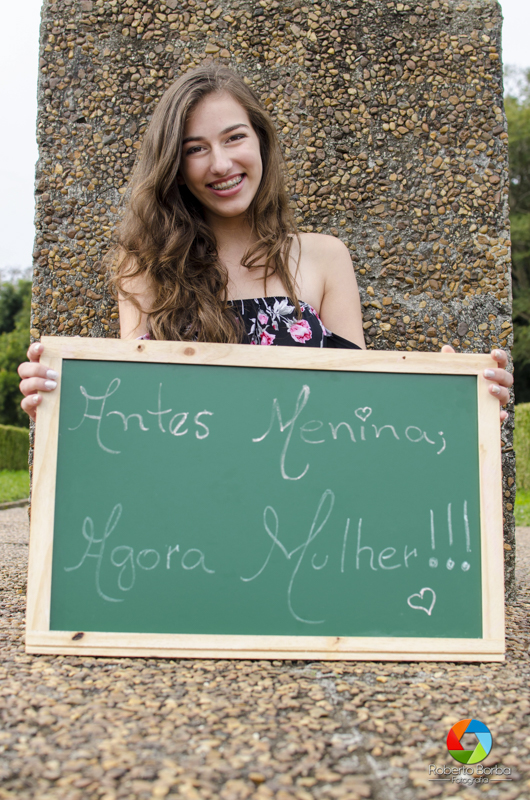 Antes Menina;
Agora Mulher!!!
Roberto Borba
Fotografia